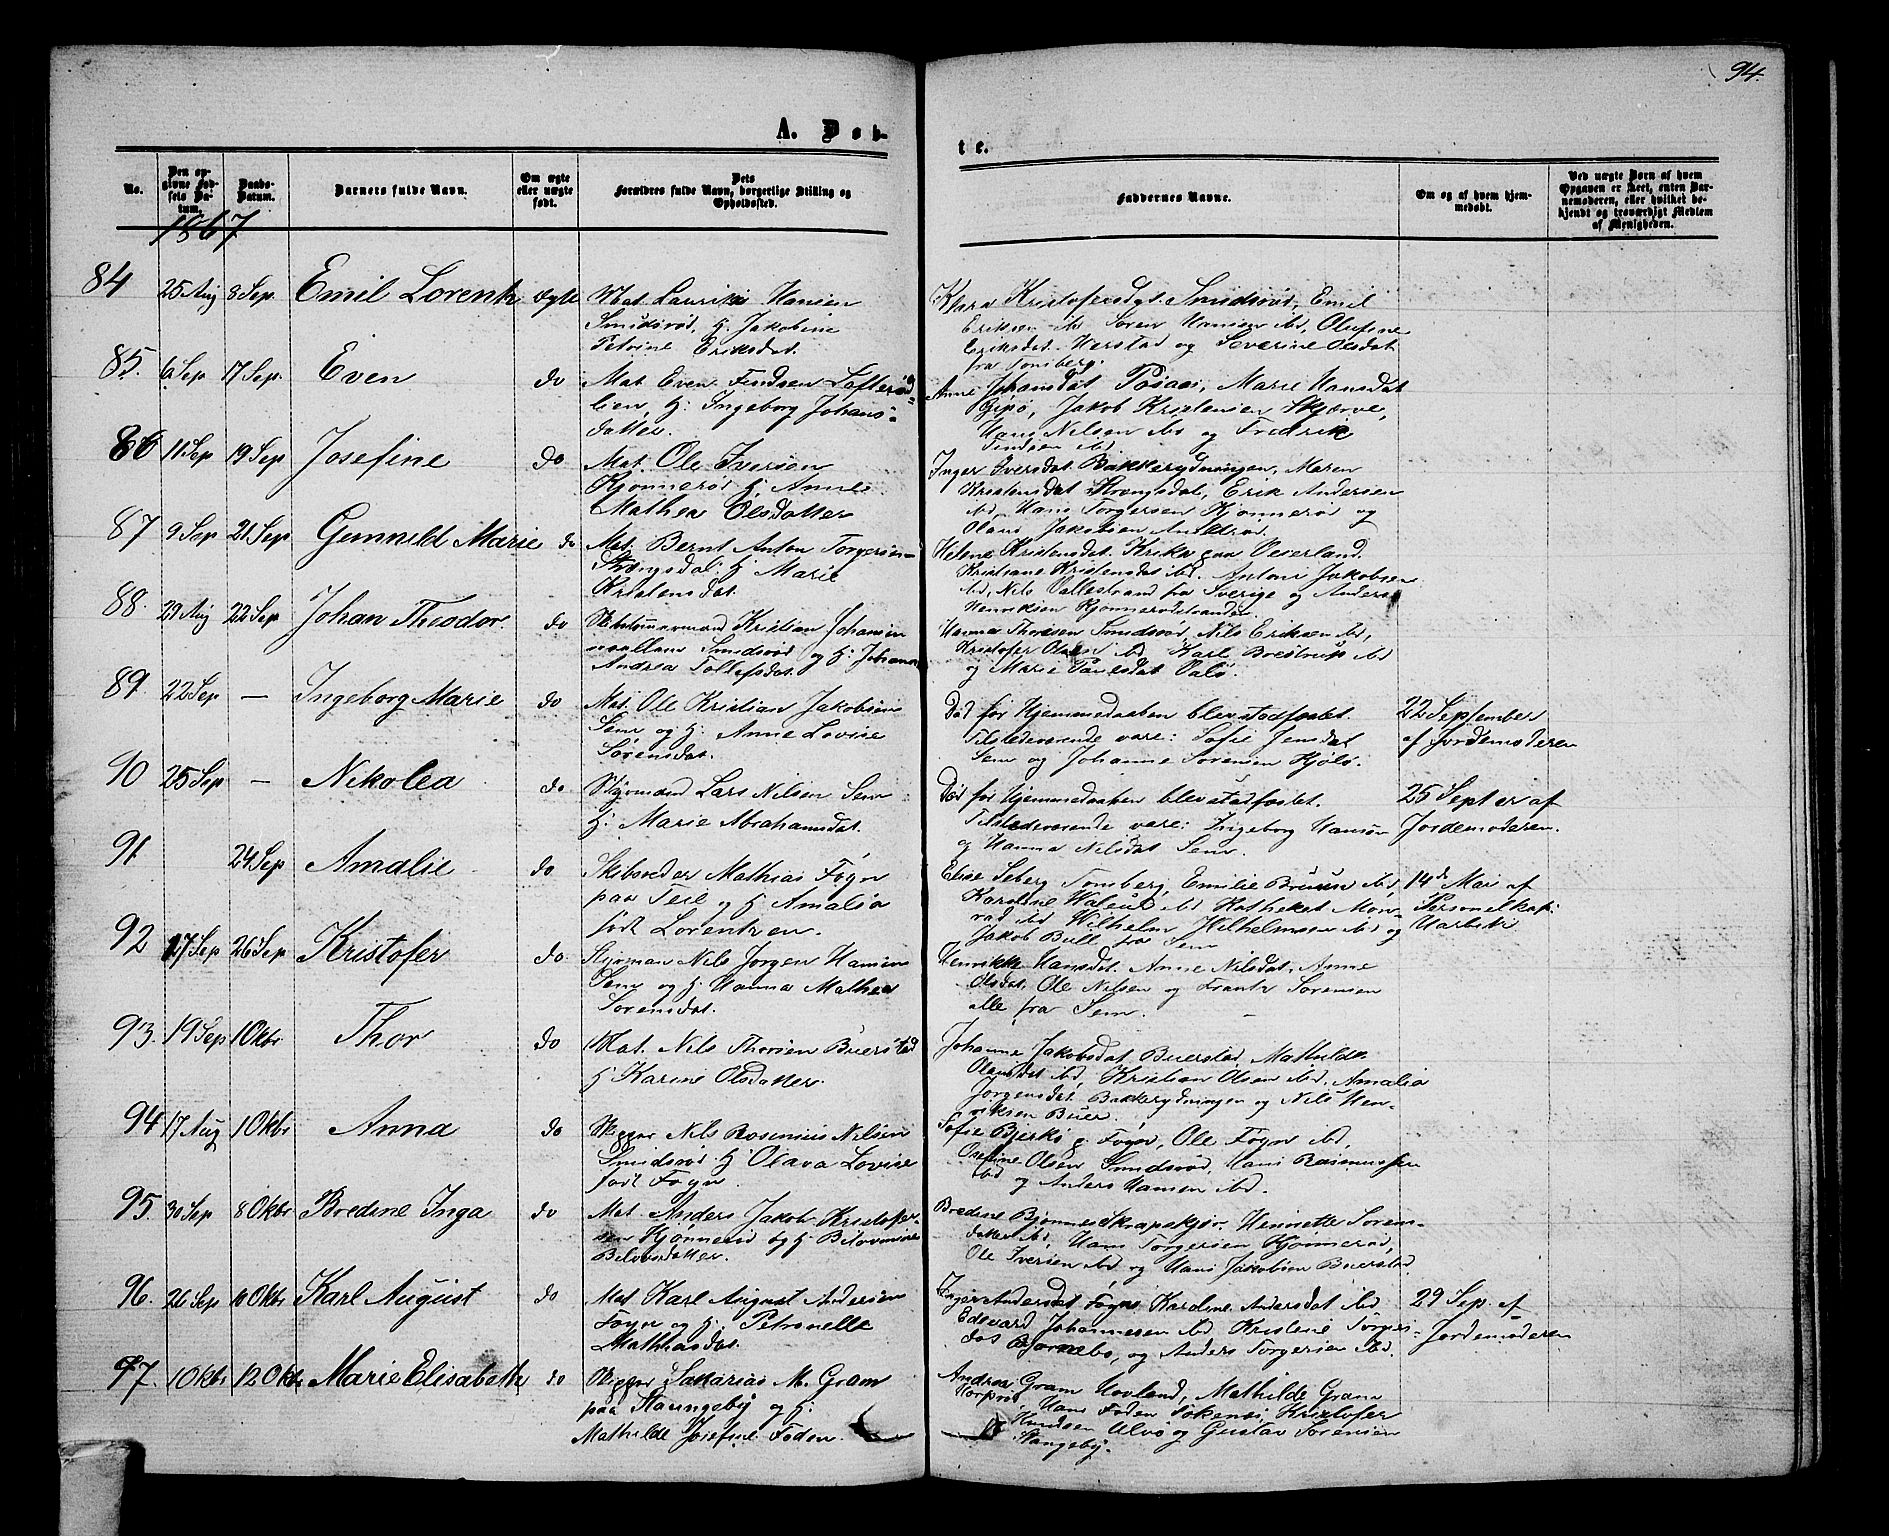 94.
A. Døb-
te.
No.
Den op-
givne Fød-
sels Da-
tum.
Daabs-
Datum.
Barnets fulde Navn.
Om ægte
eller uægte
født.
Dets
Forældres fulde Navn, borgerlige Stilling og
Opholdssted.
Faddernes Navne.
Om og af hvem hjem-
medøbt.
Ved uægte Børn af hvem
Opgaven er skeet, enten Bar-
nemoderen, eller hvilket be-
kjendt og troværdigt Medlem
af Menigheden.
1867
84 25 Aug 8 Sep. Emil Lorentz ægte
Mat. Lauritz Hansen
Smidsrød, h. Jakobine
Petrine Eriksdat.
Klara Kristofersdat. Smidsrød, Emil
Eriksen ibd Søren Hansen ibd, Olufine
Eriksdat. Herstad og Severine Olsdat
fra Tønsberg.
85. 6 Sep 17 Sep. Even do
Mat. Even Findsen
lien, h. Ingeborg Johans-
datter.
Anne Johansdat Marie Hansdat
Gipø, Jakob Kristensen Skjerve,
Hans Nilsen ibd og Fredrik
Findsen ibd
86 11 Sep 19 Sep Josefine do
Mat. Ole Iversen
Kjønnerød h. Anne
Mathea Olsdatter
Inger Iversdat. Bakkerydningen, Maren
Kristensdat Strengsdal, Erik Andersen
ibd, Hans Torgersen Kjønnerød og
Olaus Jakobsen
87 9 Sep 21 Sep Gunnild Marie do
Mat. Bernt Anton Torgersen
Strengsdal h. Marie
Kristensdat.
Helene Kristensdat. Krika paa Veierland.
Kristiane Kristensdat ibd. Anton Jakobsen
ibd, Nils Vallestrand fra Sverige og Anders
Henriksen Kjønnerødstranden
88. 29 Aug 22 Sep Johan Theodor do
Kristian Johansen
Smidsrød og h. Johanne
Andrea Tollefsdat.
Hanna Thoresen Smidsrød, Nils Eriksen ibd,
Kristofer Olsen ibd, Karl Brestrup ibd
og Marie Paulsdat Valø.
89. 22 Sep — Ingeborg Marie do
Mat. Ole Kristian Jakobsen
Sem og h. Anne Lovise
Sørensdat.
Død før Hjemmedaaben blev stadfæstet.
Tilstedeværende vare: Sofie Jensdat
Sem og Johanne Sørensen Hjølø.
22 September
af Jordemoderen
90 25 Sep — Nikolea do
Styrmand Lars Nilsen Sem
h. Marie Abrahamsdat.
Død før Hjemmedaaben blev stadfæstet.
Tilstedeværende vare: Ingeborg Hansen
og Hanna Nilsdat Sem.
25 Septer af
Jordemoderen.
91. 24 Sep Amalie do
Skibsreder Mathias Føyn
paa Teie og h. Amalia
født Lorentzen.
Elise Seberg Tønsberg, Emilie Bruun ibd,
Karoline ibd Mon-
rad ibd Wilhelm Wilhelmsen ibd og
Jakob Bull fra Sem
14de Mai af
Personelkap:
Aarbek
92 17 Sep 26 Sep Kristofer do
Styrman Nils Jørgen Hansen
Sem og h. Hanna Mathea
Sørensdat.
Henrikke Hansdat. Anne Nilsdat, Anne
Olsdat, Ole Nilsen og Frantz Sørensen
alle fra Sem.
93. 19 Sep 1 Oktbr Thor do
Mat. Nils Thorsen Buerstad
h. Karine Olsdatter.
Johanne Jakobsdat. Buerstad, Mathilde
Olausdat ibd, Kristian Olsen ibd. Amalia
Jørgensdat. Bakkerydningen og Nils Hen-
riksen Buer.
94 17 Aug 1 Oktbr Anna do
Skipper Nils Rosenius Nilsen
Smidsrød h. Olava Lovise
født Føyn.
Sofie Bjerkø f. Føyn, Ole Føyn ibd,
Olsen Smidsrød, Hans Rasmussen
ibd og Anders Hansen ibd.
95. 30 Sep 8 Oktbr Bredine Inga do
Mat. Anders Jakob Kristofer-
sen Kjønnerød og h.
Bredine Bjønnes Skrapskjær, Henriette Søren-
datter ibd, Hans Torgersen Kjønnerød,
Ole Iversen ibd og Hans Jakobsen Buerstad.
96. 26 Sep 10 Oktbr Karl August do
Mat Karl August Andersen
Føyn og h. Petronelle
Mathiasdat.
Inger Andersdat Føyn, Karoline Andersdat ibd
Edevard Johannesen ibd, Kristine Torgers-
dat Bjørnebo, og Anders Torgersen ibd.
29 Sep. af
Jordemoderen
97. 1 Oktbr 12 Oktbr Marie Elisabeth do
Skipper Sakarias M. Gram
paa Stangeby og h.
Mathilde Josefine Foden.
Andrea Gram Hovland, Mathilde Gram
Horprød Hans Foden Kristofer
Knudsen Ulvø og Gustav Sørensen
Stangeby.